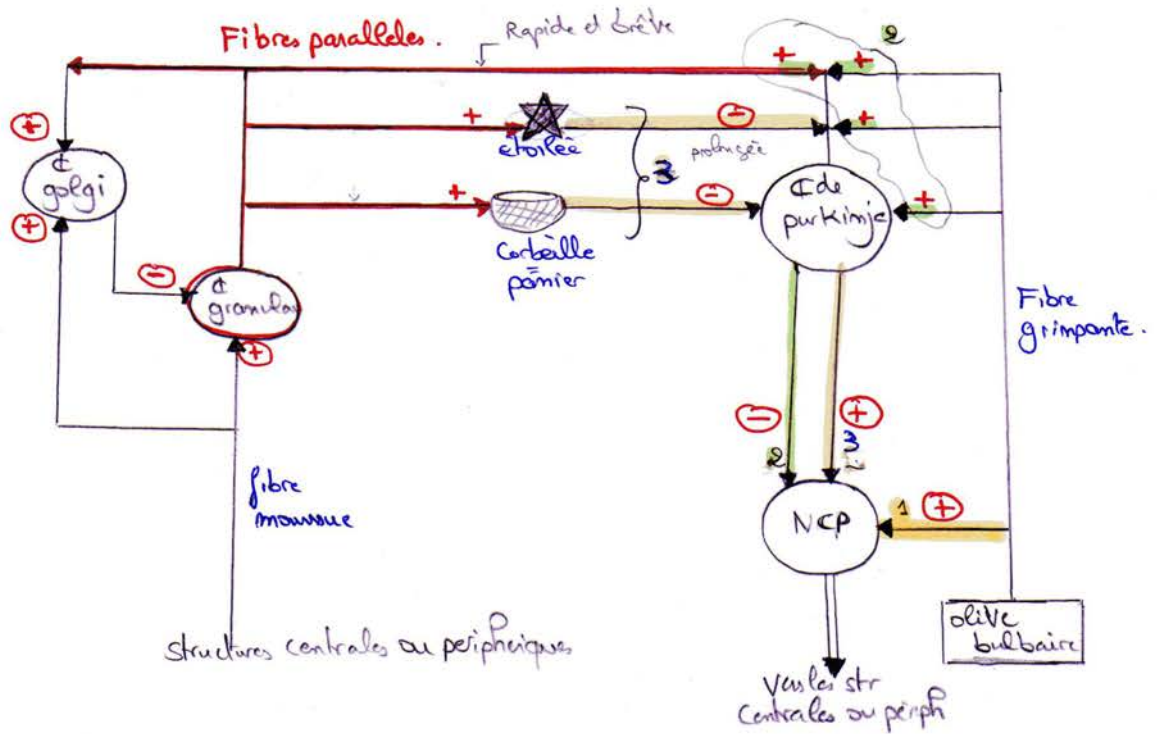 Fibres paralleles.
Rapide et brêve
2
+
+
+
+
+
-
₵
golgi
etoileé
prolongée
3
+
+
-
+
Corbeille
panier
₵ de
purkimje
-
₵
granulai
+
Fibre
grimpante.
-
+
2
3
fibre
moussue
NCP
1
+
structures centrales ou peripheriques
olive
bulbaire
Vers les str
Centrales ou périph